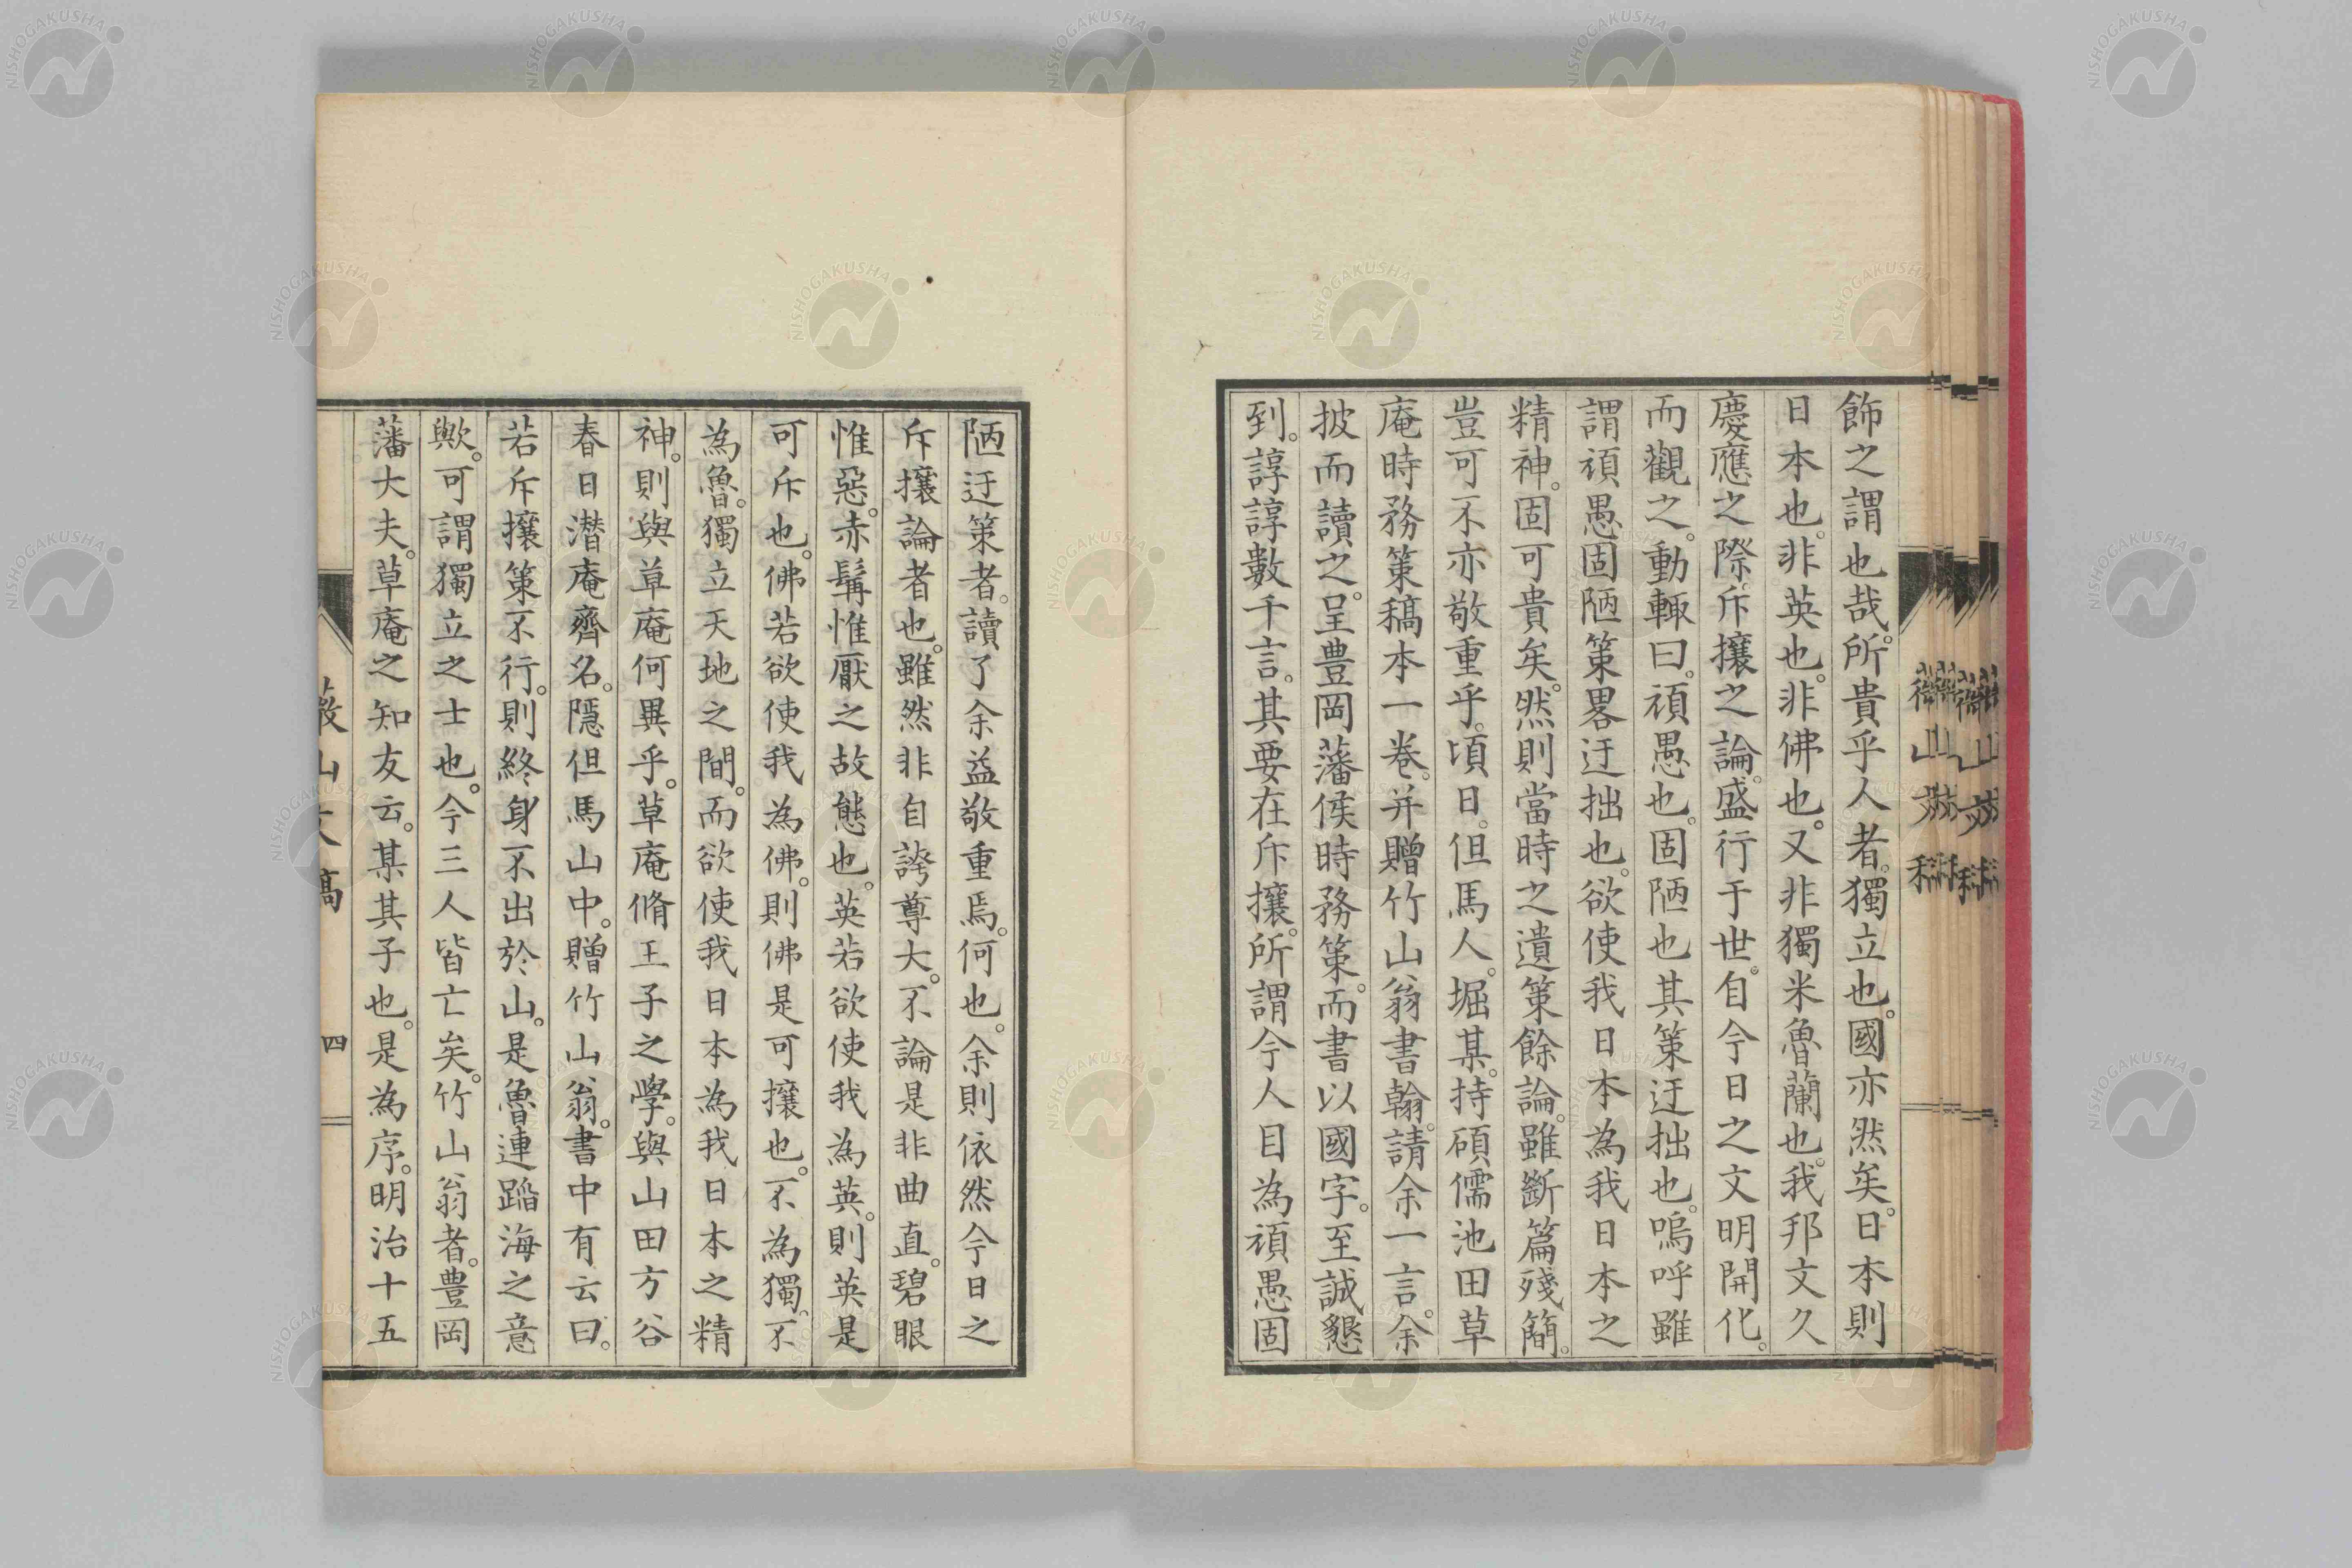 飾之謂也哉。所貴乎人者。獨立也。國亦然矣。日本則
日本也。非英也。非佛也。又非獨米魯蘭也。我邦文久
慶應之際。斥攘之論。盛行于世。自今日之文明開化。
而觀之。動輙曰。頑愚也。固陋也其策迂拙也。嗚呼雖
謂頑愚固陋策畧迂拙也。欲使我日本為我日本之
精神。固可貴矣。然則當時之遺策餘論。雖斷篇殘簡。
豈可不亦敬重乎。頃日。但馬人。堀某。持碩儒池田草
庵時務策稿本一卷。并贈竹山翁書翰。請余一言。余
披而讀之。呈豊岡藩侯時務策。而書以國字。至誠懇
到。諄諄數千言。其要在斥攘。所謂今人目為頑愚固
陋迂策者。讀了余益敬重焉。何也。余則依然今日之
斥攘論者也。雖然非自誇尊大。不論是非曲直。碧眼
惟惡。赤髯惟厭之故態也。英若欲使我為英。則英是
可斥也。佛若欲使我為佛。則佛是可攘也。不為獨。不
為魯。獨立天地之間。而欲使我日本為我日本之精
神。則與草庵何異乎。草庵脩王子之學。與山田方谷
春日潛庵齊名。隱但馬山中。贈竹山翁。書中有云曰。
若斥攘策不行。則終身不出於山。是魯連蹈海之意
歟。可謂獨立之士也。今三人皆亡矣。竹山翁者。豊岡
藩大夫。草庵之知友云。某其子也。是為序。明治十五
四
NISHOGAKUSHA